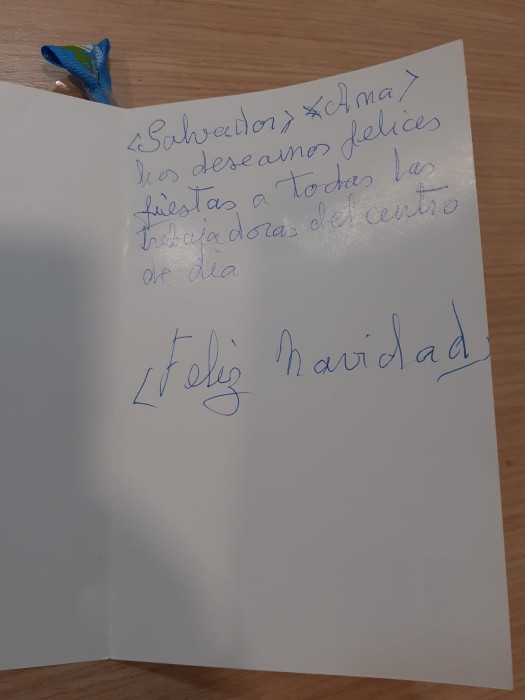 <Salvador> <Ana>
hos deseamos felices
fiestas a todas las
trabajadoras del centro
de dia
<Feliz navidad>